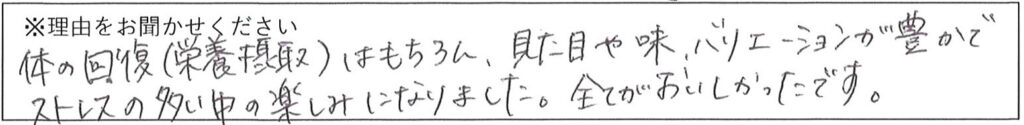 ※理由をお聞かせください
体の回復(栄養摂取)はもちろん、見た目や味、バリエーションが豊かで
ストレスの多い中の楽しみになりました。全てがおいしかったです。